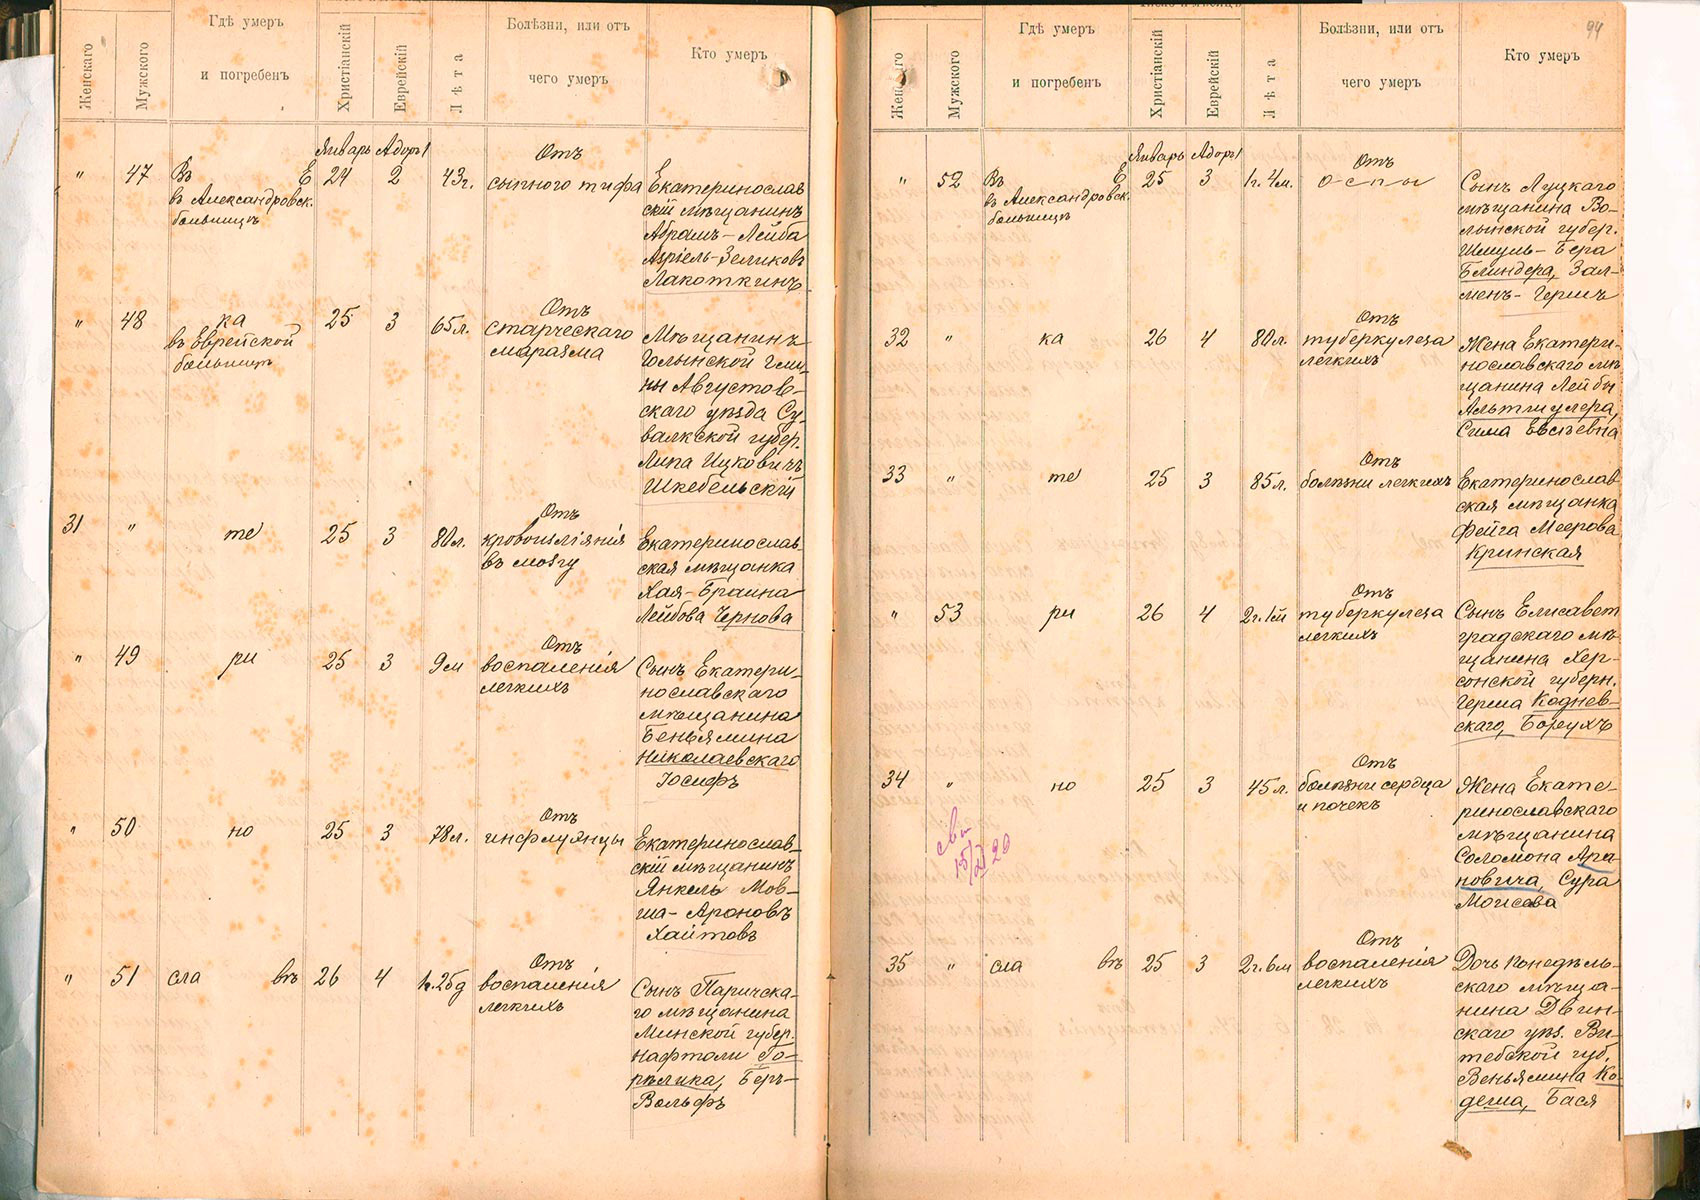 Женскаго
Мужского
Гдѣ умеръ
и погребенъ
Христіанскій
Еврейскій
Лѣта
Болѣзни, или отъ
чего умеръ
Кто умеръ
Январь Адоръ 1
" 47 Въ Е 24 2 43 г.
в Александровск.
больницѣ
Отъ
сыпного тифа
Екатеринослав
скій мѣщанинъ
Абрамъ-Лейба
Азріель-Зеликовъ
Лакоткинъ
" 48 ка 25 3 65 л.
въ Еврейской
больницѣ
Отъ
старческаго
маразма
Мѣщанинъ
Голынской гми-
ны Августов-
скаго уѣзда Су-
валкской губер.
Липа Ицковичъ
Шкебельскій
31 " те 25 3 80 л.
Отъ
кровоизліянія
въ мозгу
Екатеринослав-
ская мѣщанка
Хая-Браина
Лейбова Чернова
" 49 ри 25 3 9 м
Отъ
воспаленія
легкихъ
Сынъ Екатери-
нославскаго
мѣщанина
Беньямина
Николаевскаго
Іосифъ
" 50 но 25 3 78 л.
Отъ
инфлуэнцы
Екатеринослав-
скій мѣщанинъ
Янкель Мов-
ша-Ароновъ
Хаитовъ
" 51 сла въ 26 4
Отъ
воспаленія
легкихъ
Сынъ Паричска-
го мѣщанина
Минской губер.
Нафтоли Го-
рѣлика, Беръ-
Вольфъ
94
Женскаго
Мужского
Гдѣ умеръ
и погребенъ
Христіанскій
Еврейскій
Лѣта
Болѣзни, или отъ
чего умеръ
Кто умеръ
Январь Адоръ 1
" 52 Въ Е 25 3 1 г. 4 м.
въ Александровск.
больницѣ
Отъ
оспы
Сынъ Луцкаго
мѣщанина Во-
лынской губер.
Шмуль-Бера
Блиндера, Зал-
менъ-Гершъ
32 " ка 26 4 80 л.
Отъ
туберкулеза
легкихъ
Жена Екатери-
нославскаго мѣ-
щанина Лейбы
Альтшулера,
Сима Евсѣевна
33 " те 25 3 85 л.
Отъ
болѣзни легкихъ
Екатеринослав
ская мѣщанка
Фейга Меерова
Кринская
" 53 ри 26 4 2 г. 1 м
Отъ
туберкулеза
легкихъ
Сынъ Елисавет
градскаго мѣ-
щанина Хер-
сонской губерн.
Герша Коднев-
скаго, Борухъ
34 " но 25 3 45 л.
Отъ
болѣзни сердца
и почекъ
Жена Екате-
ринославскаго
мѣщанина
Соломона Аро-
новича, Сура
Моисева
35 " сла въ 25 3 2 г. 6 м
Отъ
воспаленія
легкихъ
Дочь
скаго мѣща-
нина Двин-
скаго уѣз. Ви-
тебской губ.
Веньямина Ко-
деша, Бася